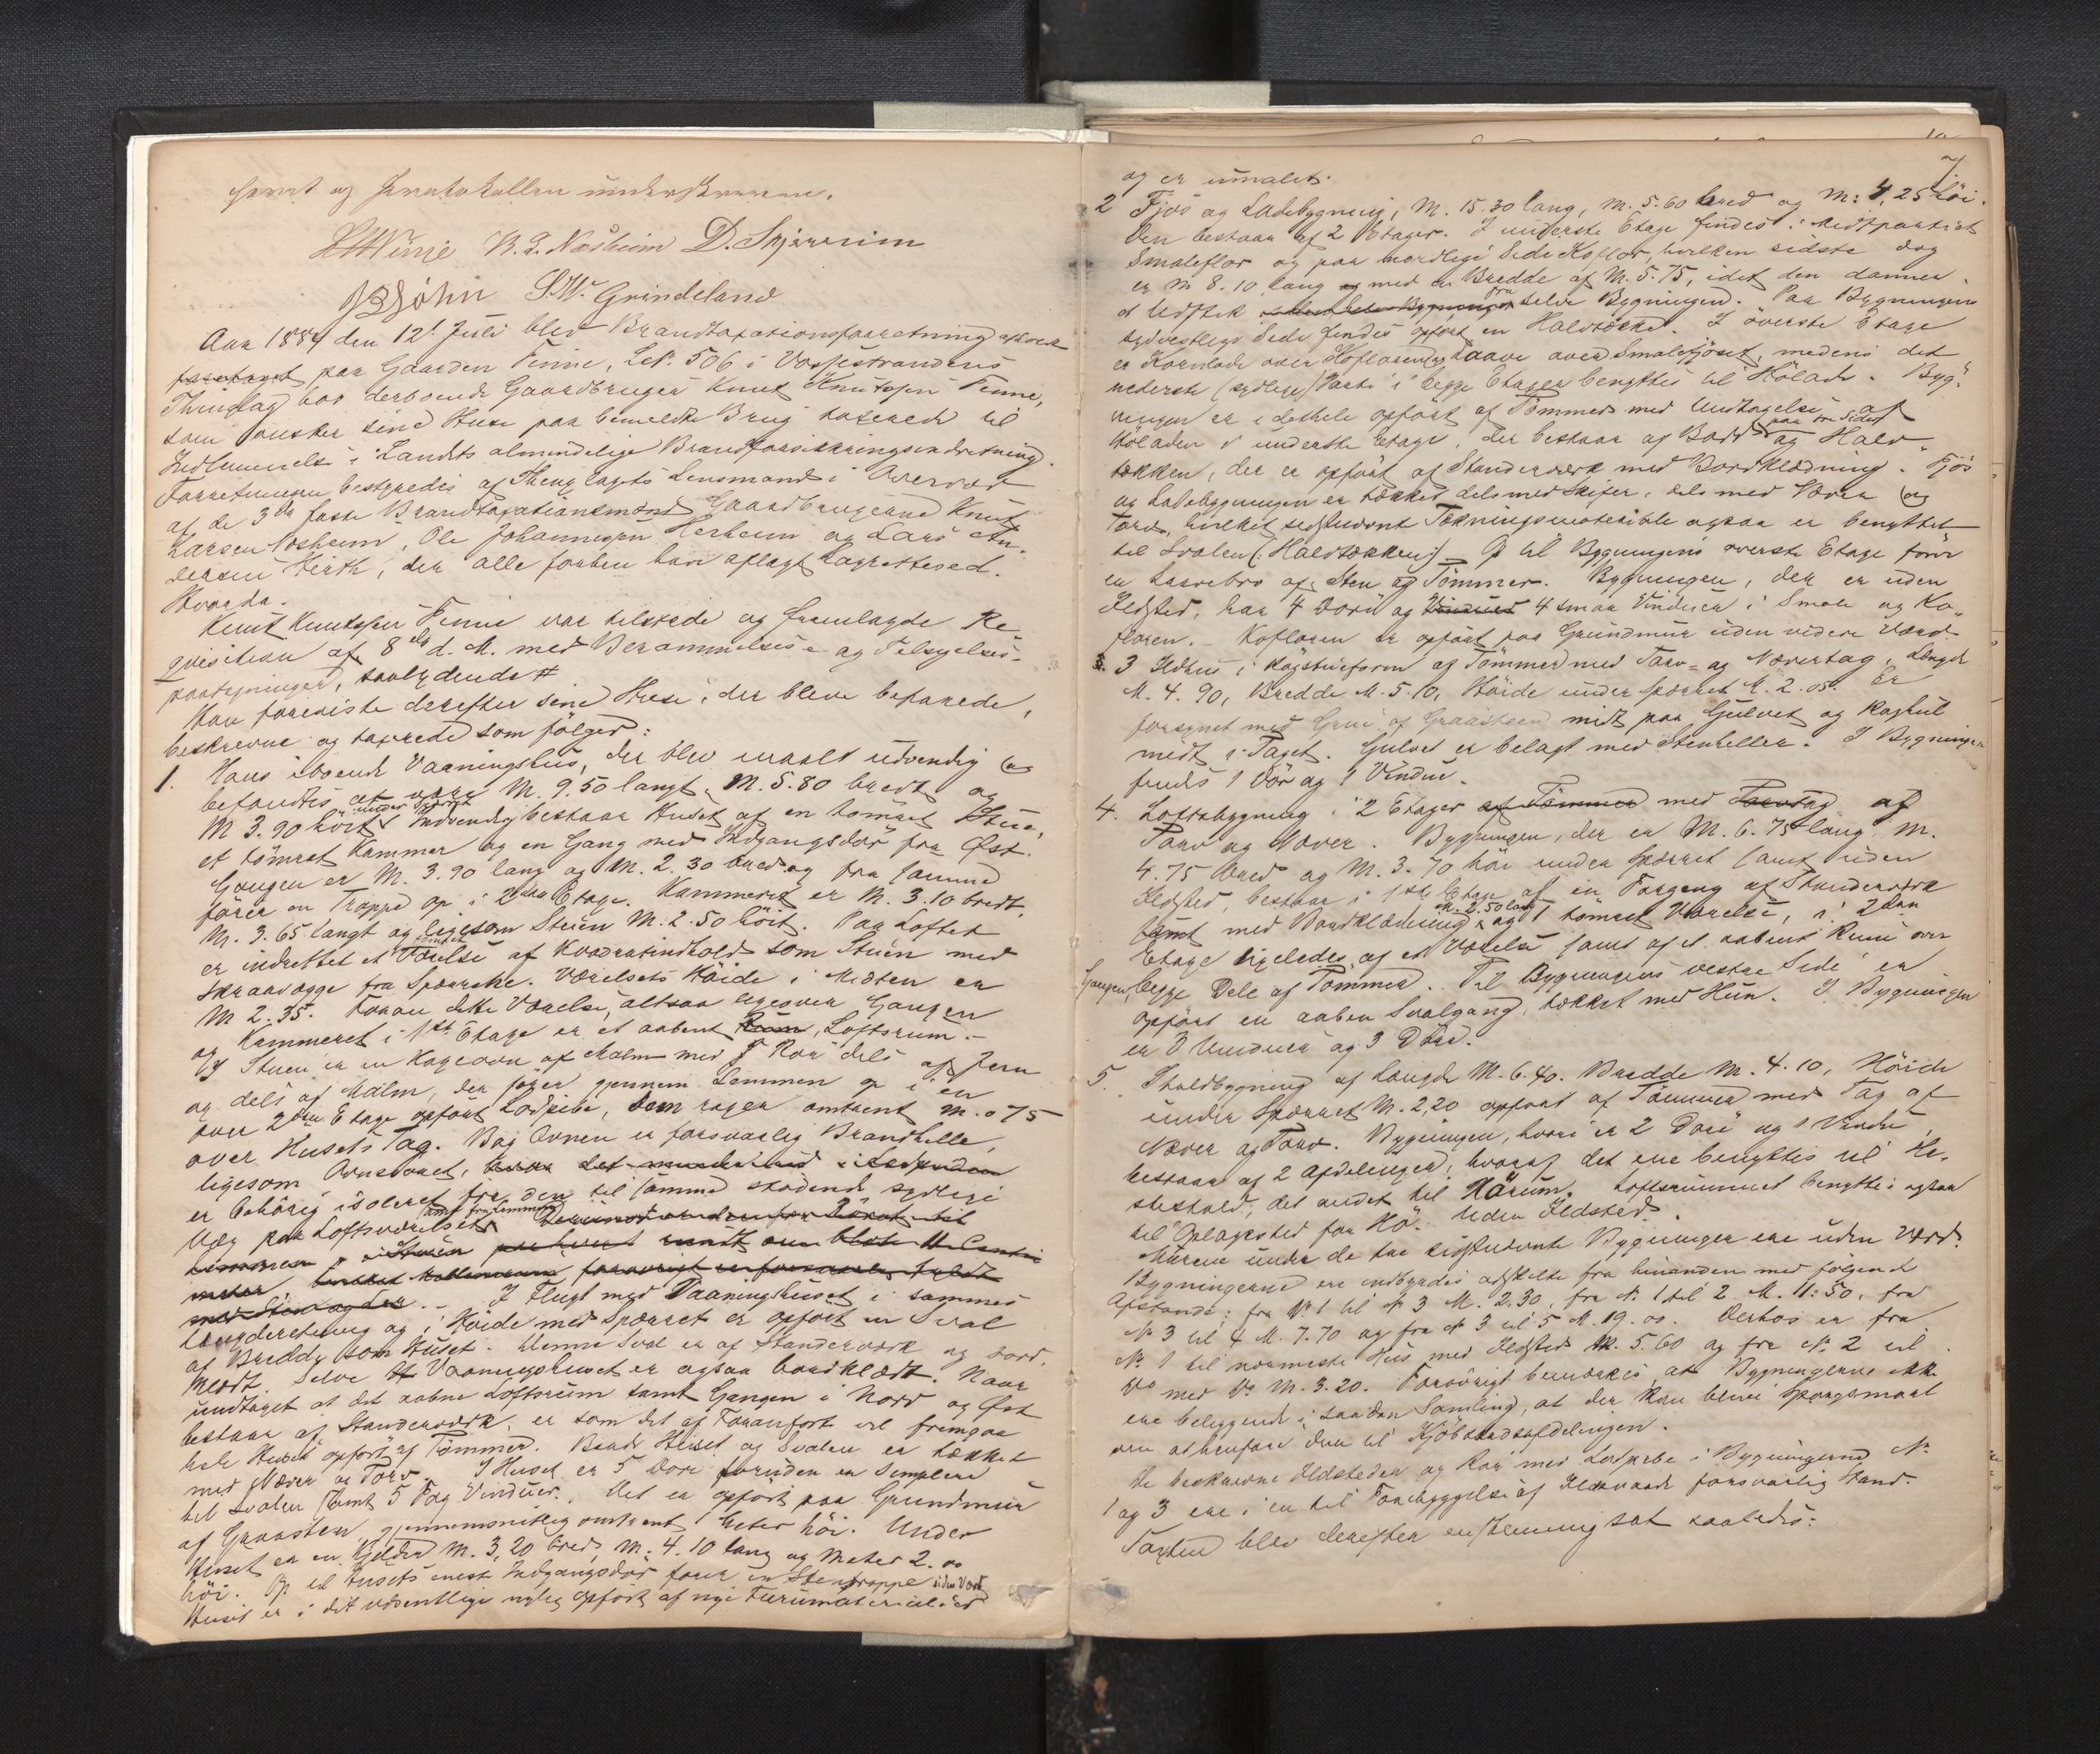 hævet og Protokollen underskreven.
B. L. Næsheim D. Skjerveim
S. W. Grindeland
Aar 1884 den 12te Juli blev Brandtaxationsforretning afholdt
foretaget paa Gaarden Finne, L.No. 506 i Vossestrandens
Thinglag hos derboende Gaardbruger Knut Knutsen Finne,
som ønsker sine Huse paa bemeldte Brug taxerede til
Indlemmelse i Landets almindelige Brandforsikringsindretning.
Forretningen bestyredes af Thinglagets Lensmand i Overvær
af de 3de faste Brandtaxationsmænd Gaardbrugerne Knut
Larsen Næsheim, Ole Johannesen Herheim og Lars An-
dersen Virth, der alle forhen have aflagt Lagrettesed.
Hvorda.
Knut Knutsen Finne var tilstede og fremlagde Re-
qvisition af 8de d. M. med Berammelses- og Tilsigelses-
paategninger, saalydende #
Han foreviste derefter sine Huse, der bleve befarede,
beskrevne og taxerede som følger:
1. Hans iboende Vaaningshus, der blev maalt udvendig og
befandtes at være M. 9.50 langt, M. 5.80 bredt og
M 3.90 høit under Sperret. Indvendig bestaar Huset af en tømret Stue,
et tømret Kammer og en Gang med Indgangsdør fra Øst.
Gangen er M. 3.90 lang og M. 2.30 bred og fra samme
fører en Trappe op i 2den Etage. Kammeret er M. 3.10 bredt,
M. 3.65 langt og ligesom Stuen M. 2.50 høit. Paa Loftet
er indrettet et tømret Værelse af Kvadratindhold som Stuen med
Skraavægge fra Sperrene. Værelsets Høide i Midten er
M 2.35. Foran dette Værelse, altsaa ligeover Gangen
og Kammeret i 1ste Etage er et aabent Rum, Loftsrum.
I Stuen er en Kogeovn af Malm med Rør dels af Jern
og dels af Malm, der fører gjennem Lemmen op i en
over 2den Etage opført Lodpibe, som rager omtrent M. 0 75
over Husets Tag. Bag Ovnen er forsvarlig Brandhelle,
ligesom Ovnsrøret,
er behørig isoleret fra den til samme stødende sydlige
Væg paa Loftsværelset samt fra Lemmen
I Flugt med Vaaningshuset i sammes
Længderetning og i Høide med Sperret er opført en Sval
af Bredde som Huset. Denne Sval er af Standerværk og bord-
klædt. Selve Vaaningshuset er ogsaa bordklædt. Naar
undtages at det aabne Loftsrum samt Gangen i Nord og Øst
bestaar af Standerværk, er som det af Foranførte vil fremgaa
hele Huset opført af Tømmer. Baade Huset og Svalen er tækket
med Næver og Torv. I Huset er 5 Døre foruden en simplere
til Svalen samt 5 Fag Vinduer. Det er opført paa Grundmur
af Graasten, gjennemsnitlig omtrent 1 Meter høi. Under
Huset er en Kjelder M. 3,20 bred, M. 4.10 lang og Meter 2.00
høi. Op til Husets eneste Indgangsdør fører en Stentrappe uden Værd
Huset er i det væsentlige nylig opført af nye Furumaterialier
7
og er umalet.
2 Fjøs og Ladebygning, M. 15.30 lang, M. 5.60 bred og M: 4,25 høi.
Den bestaar af 2 Etager. I underste Etage findes i Midtpartiet
Smaleflor og paa nordlige Side Koflor, hvilken sidste dog
er M 8.10 lang med en Bredde af M. 5.75, idet den danner
et Udstik fra selve Bygningen. Paa Bygningens
sydvestlige Side findes opført en Halvtække. I øverste Etage
er Kornlade over Kofloren og Laave over Smalefjøset, medens det
nederste (sydlige) Parti i begge Etager benyttes til Hølade. Byg-
ningen er i dethele opført af Tømmer med Undtagelse af
Høladen i underste Etage, der bestaar af Bord paa en Side og Halv-
tækken, der er opført af Standerværk med Bordklædning. Fjøs
og Ladebygningen er tækket dels med Skifer, dels med Næver og
Torv, hvilket sidstnævnte Tækningsmateriale ogsaa er benyttet
til Svalen (: Halvtækken :) Op til Bygningens øverste Etage fører
en Laavebro af Sten og Tømmer. Bygningen, der er uden
Ildsted, har 4 Døre og 4 smaa Vinduer i Smale og Ko-
floren. Kofloren er opført paa Grundmur uden videre Værd.
3 Ildhus i Røgstueform af Tømmer med Torv- og Nævertag, Længde
M. 4.90, Bredde M. 5.10, Høide under Sperret M. 2.05. Er
forsynet med Grue af Graasteen midt paa Gulvet og Røghul
midt i Taget. Gulvet er belagt med Stenheller. I Bygningen
findes 1 Dør og 1 Vindue.
4. Loftsbygning i 2 Etager af Tømmer med Tag af
Torv og Næver. Bygningen, der er M. 6.75 lang M.
4.75 bred og M. 3.70 høi under Sperret samt uden
Ildsted, bestaar i 1ste Etage af en Forgang af Standerværk
samt med Bordklædning M. 2.50 lang og 1 tømret Værelse, i 2den
Etage ligeledes af et Værelse samt af et aabent Rum over
Gangen, begge Dele af Tømmer. Til Bygningens vestre Side er
opført en aaben Svalgang, tækket med Hun. I Bygningen
er 3 Vinduer og 3 Døre.
5. Staldbygning af Længde M. 6.40. Bredde M. 4.10, Høide
under Sperret M. 2,20 opført af Tømmer med Tag af
Næver og Torv. Bygningen, hvori er 2 Døre og 1 Vindue,
bestaar af 2 Afdelinger, hvoraf det ene benyttes til He-
stestald, det andet til Hørum. Loftsrummet benyttes ogsaa
til Oplagssted for Hø. Uden Ildsted.
Murene under de tre sidstnævnte Bygninger ere uden Værd.
Bygningerne ere indbyrdes adskilte fra hinanden med følgende
Afstande: fra No 1 til No 3 M. 2.30, fra No. 1 til 2 M. 11.50, fra
No 3 til 4 M. 7.70 og fra No 3 til 5 M. 19.00. Derhos er fra
No. 1 til nærmeste Hus med Ildsted M. 5.60 og fra No. 2 til
Do med Do M. 3.20. Forøvrigt bemærkes, at Bygningerne ikke
ere beliggende i saadan Samling, at der kan blive Spørgsmaal
om at henføre dem til Kjøbstadsafdelingen.
De beskrevne Ildsteder og Rør med Lodpibe i Bygningerne No.
1 og 3 ere i en til Forebyggelse af Ildsvaade forsvarlig Stand.
Taxten blev derefter enstemmig sat saaledes: